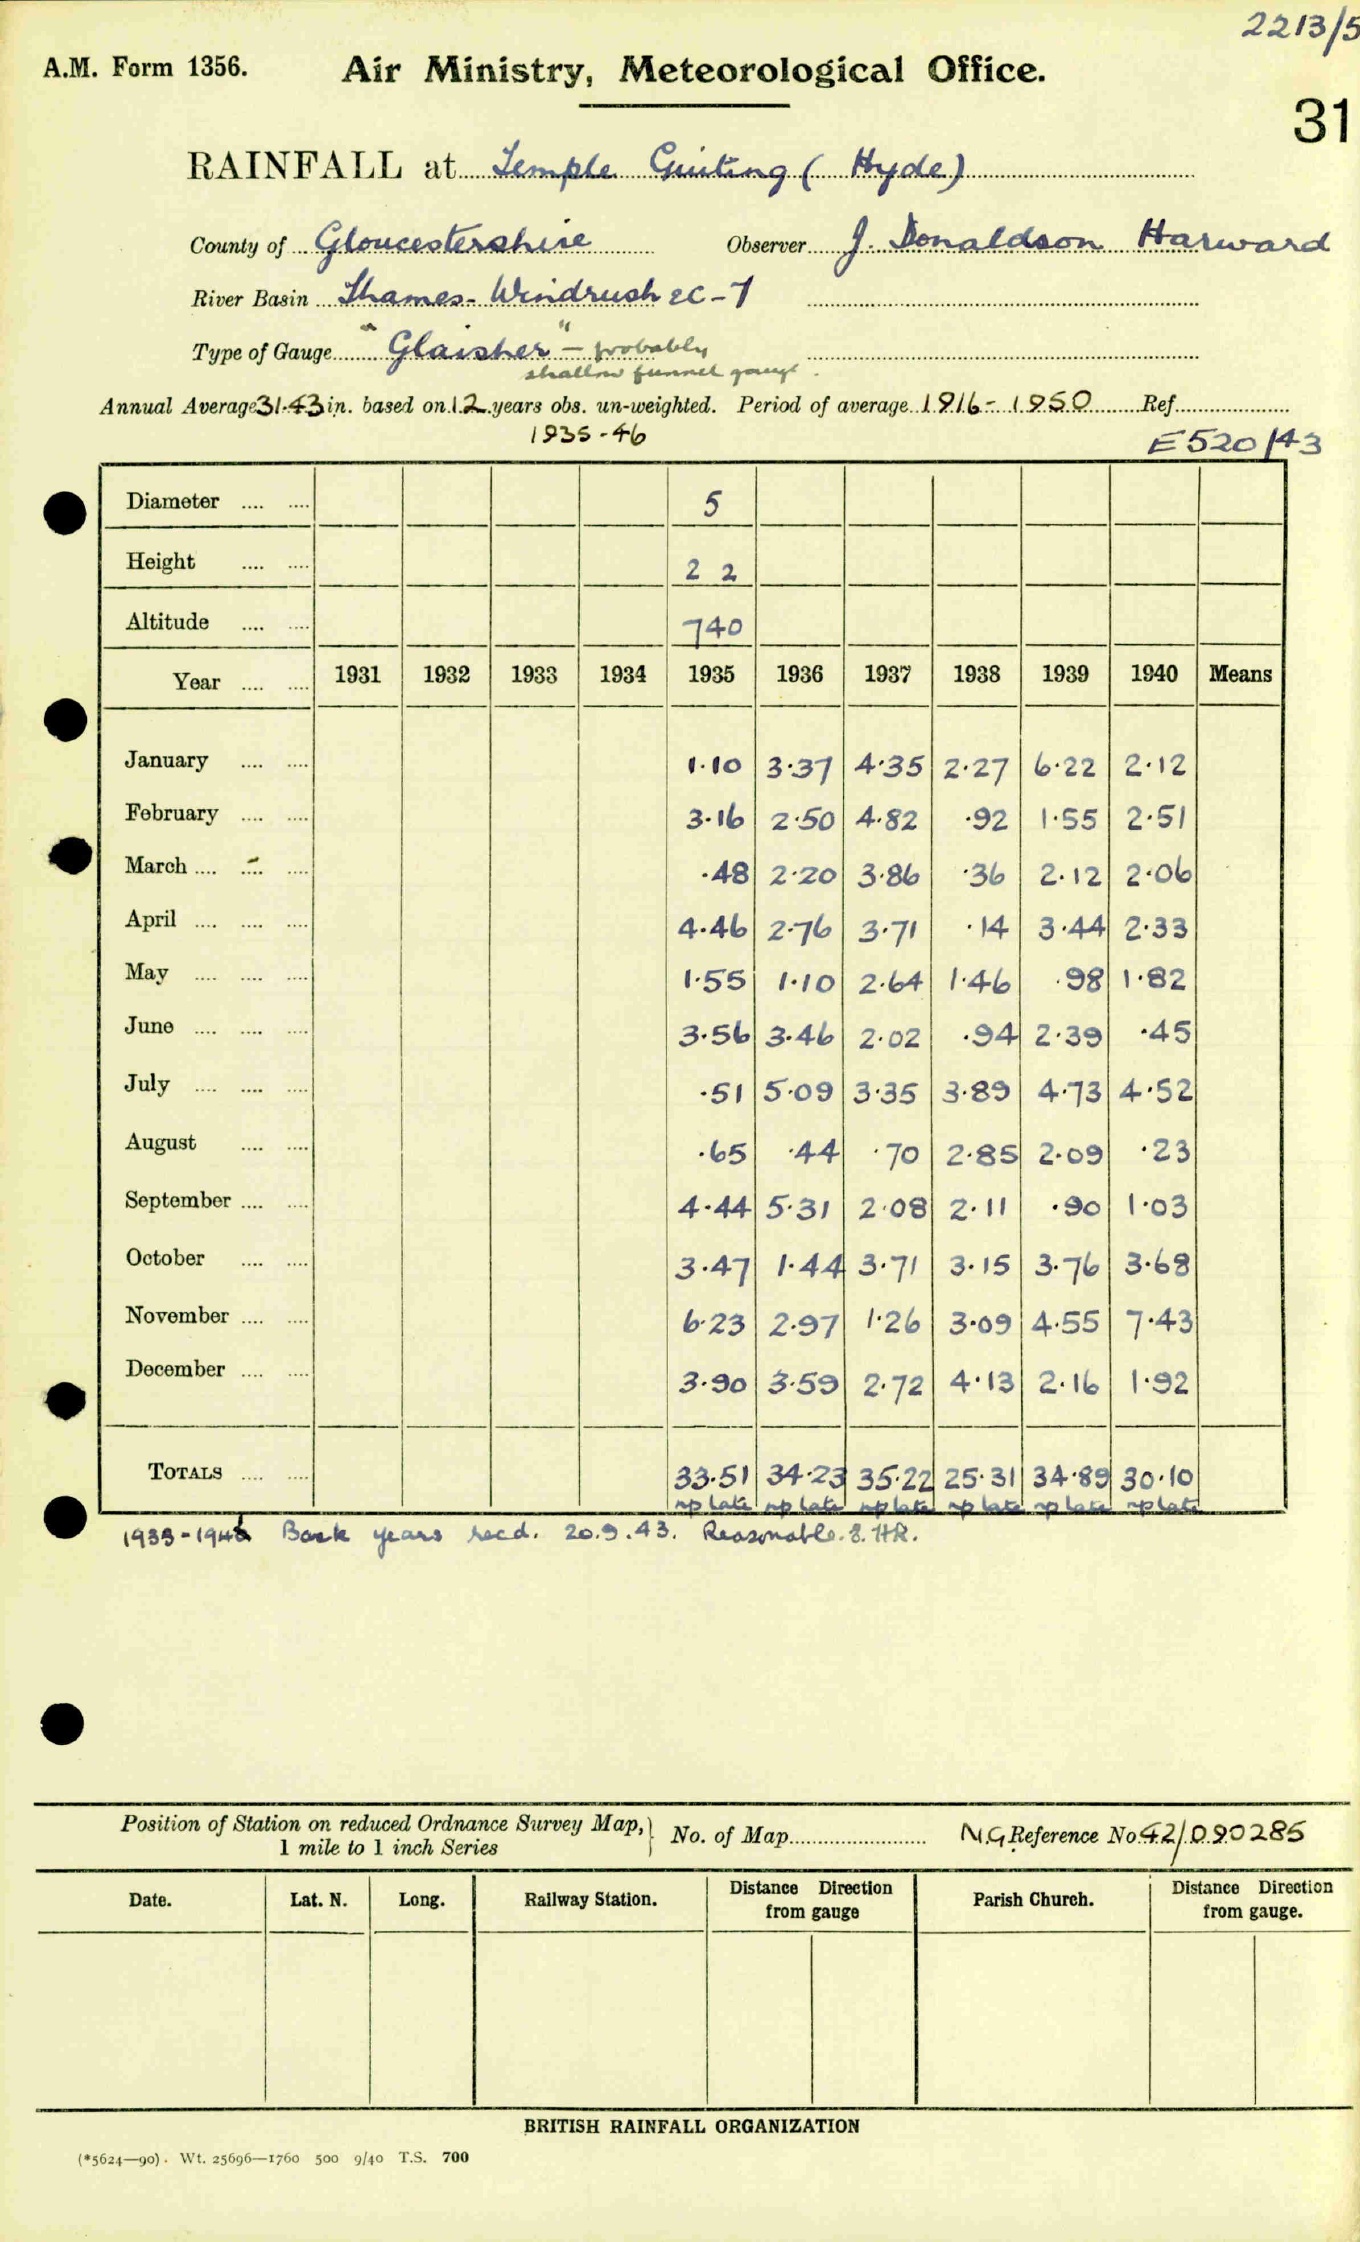 2213/5
A.M. Form 1356. Air Ministry, Meteorological Office.
31
RAINFALL at Temple Guiting (Hyde)
County of Gloucestershire Observer J. Donaldson Harward
River Basin Thames-Windrush EC-7
Type of Gauge "Glaisher" - probably
shallow funnel gauge.
Annual Average 31.43 in. based on 12 years obs. un-weighted. Period of average 1916-1950 Ref.
1935-46 E520/43
Diameter 5
Height 22
Altitude 740
Year 1931 1932 1933 1934 1935 1936 1937 1938 1939 1940 Means
January 1.10 3.37 4.35 2.27 6.22 2.12
February 3.16 2.50 4.82 .92 1.55 2.51
March .48 2.20 3.86 .36 2.12 2.06
April 4.46 2.76 3.71 .14 3.44 2.33
May 1.55 1.10 2.64 1.46 .98 1.82
June 3.56 3.46 2.02 .94 2.39 .45
July .51 5.09 3.35 3.89 4.73 4.52
August .65 .44 .70 2.85 2.09 .23
September 4.44 5.31 2.08 2.11 .90 1.03
October 3.47 1.44 3.71 3.15 3.76 3.68
November 6.23 2.97 1.26 3.09 4.55 7.43
December 3.90 3.59 2.72 4.13 2.16 1.92
TOTALS 33.51 34.23 35.22 25.31 34.89 30.10
np late np late np late np late np late np late
Back years recd. 20.9.43. Reasonable.
Position of Station on reduced Ordnance Survey Map, No. of Map N.G. Reference No. 42/090285
1 mile to 1 inch Series
Date. Lat. N. Long. Railway Station. Distance Direction from gauge Parish Church. Distance Direction from gauge.
BRITISH RAINFALL ORGANIZATION
(*5624—90). Wt. 25696—1760 500 9/40 T.S. 700